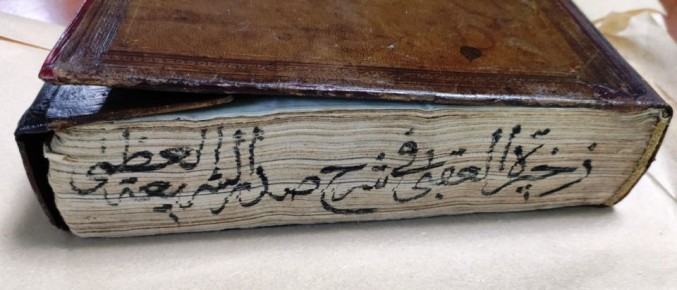 ذخيرة العقبى في شرح صدر الشريعة العظمى